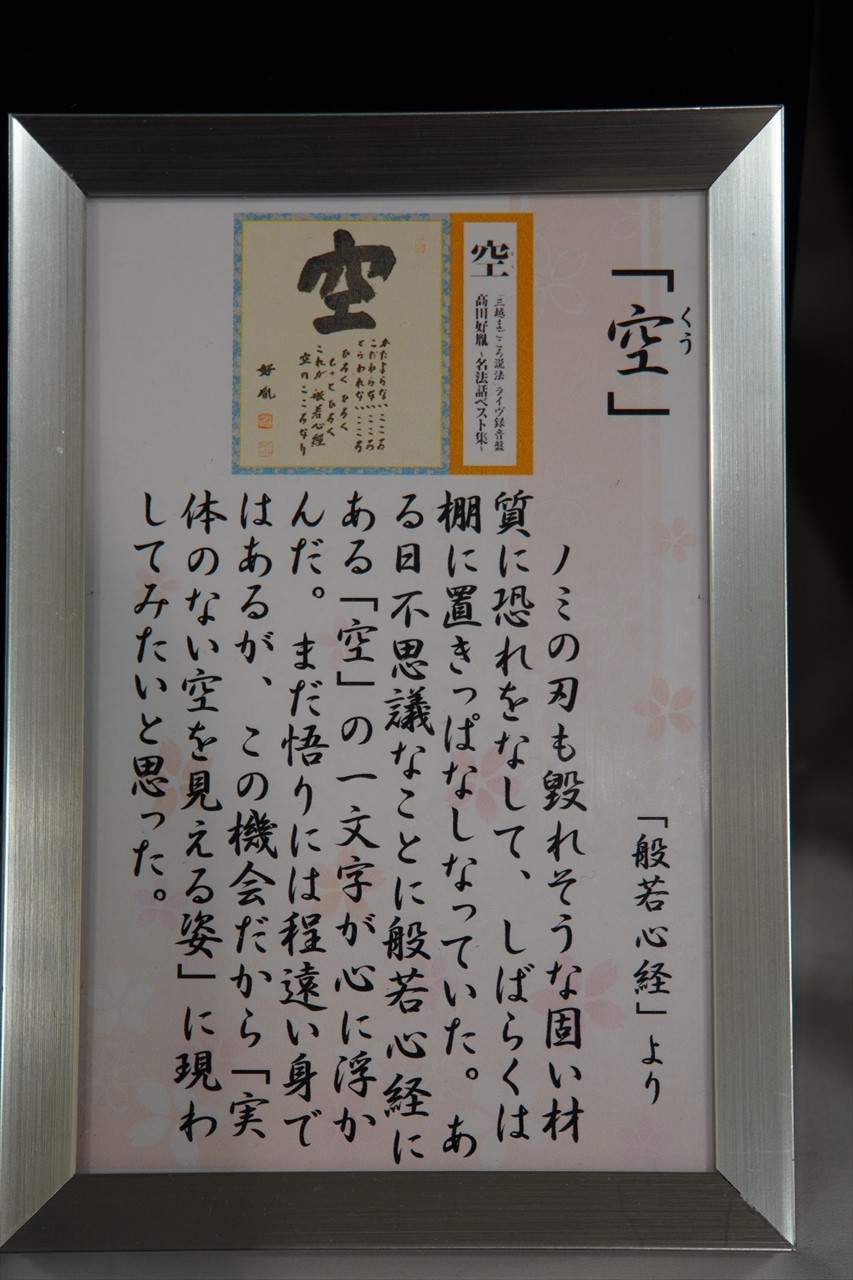 「空」
くう
「般若心経」より
空
「三越まごころ説法 ライヴ録音盤
高田好胤～名法話ベスト集～
空
かたよらないこころ
こだわらないこころ
とらわれないこころ
ひろく ひろく
もっとひろく
これが般若心経
空のこころなり
好胤
ノミの刃も毀れそうな固い材
質に恐れをなして、しばらくは
棚に置きっぱなしなっていた。あ
る日不思議なことに般若心経に
ある「空」の一文字が心に浮か
んだ。まだ悟りには程遠い身で
はあるが、この機会だから「実
体のない空を見える姿」に現わ
してみたいと思った。